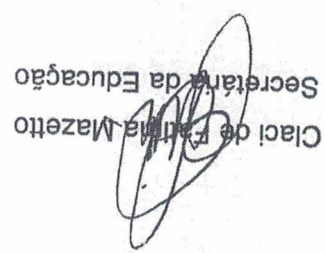 Claci de Fatima Mazetto
Secretária da Educação